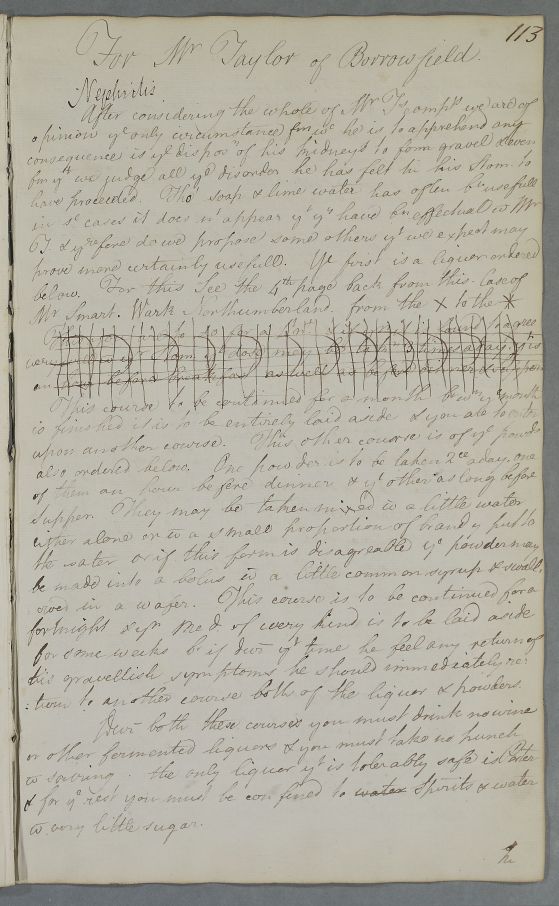 113
For Mr Taylor of Borrowfield.
Nephritis
After considering the whole of Mr Ts compts we are of
opinion ye only circumstance fm wc he is to apprehend any
consequence is ye disposn of his kidneys to form gravel & even
fm yt we judge all ye disorder he has felt in his Stom. to
have proceeded. Tho' soap & lime water has often bn usefull
in sc cases it does nt appear yt yy have bn effectual wt Mr
T. & yrefore do we propose some others yt we expect may
prove more certainly usefull. Ye first is a liquor ordered
below. For this See the 4th page back from this. Case of
Mr Smart. Wark Northumberland. from the × to the *
before breakfast as well as before dinner
This course is to be continued for a month & wn ye month
is finished it is to be entirely laid aside & you are to enter
upon another course. This other course is of ye powder
also ordered below. One powder is to be taken 2ce a day, one
of them an hour before dinner & ye other as long before
Supper. They may be taken mixed wt a little water
either alone or wt a small proportion of brandy put to
the water or if this form is disagreable ye powder may
be made into a bolus wt a little common syrup & swall:
owed in a wafer. This course is to be continued for a
fortnight & yn Med of every kind is to be laid aside
for some weeks bt if durg yt time he feel any return of
his gravellish symptoms he should immediately re:
:turn to another course both of the liquor & powders.
Durg both these courses you must drink no wine
or other fermented liquors & you must take no punch
wt souring. the only liquor yt is tolerably safe is water
& for ye rest you must be confined to water Spirits & water
wt very little sugar.